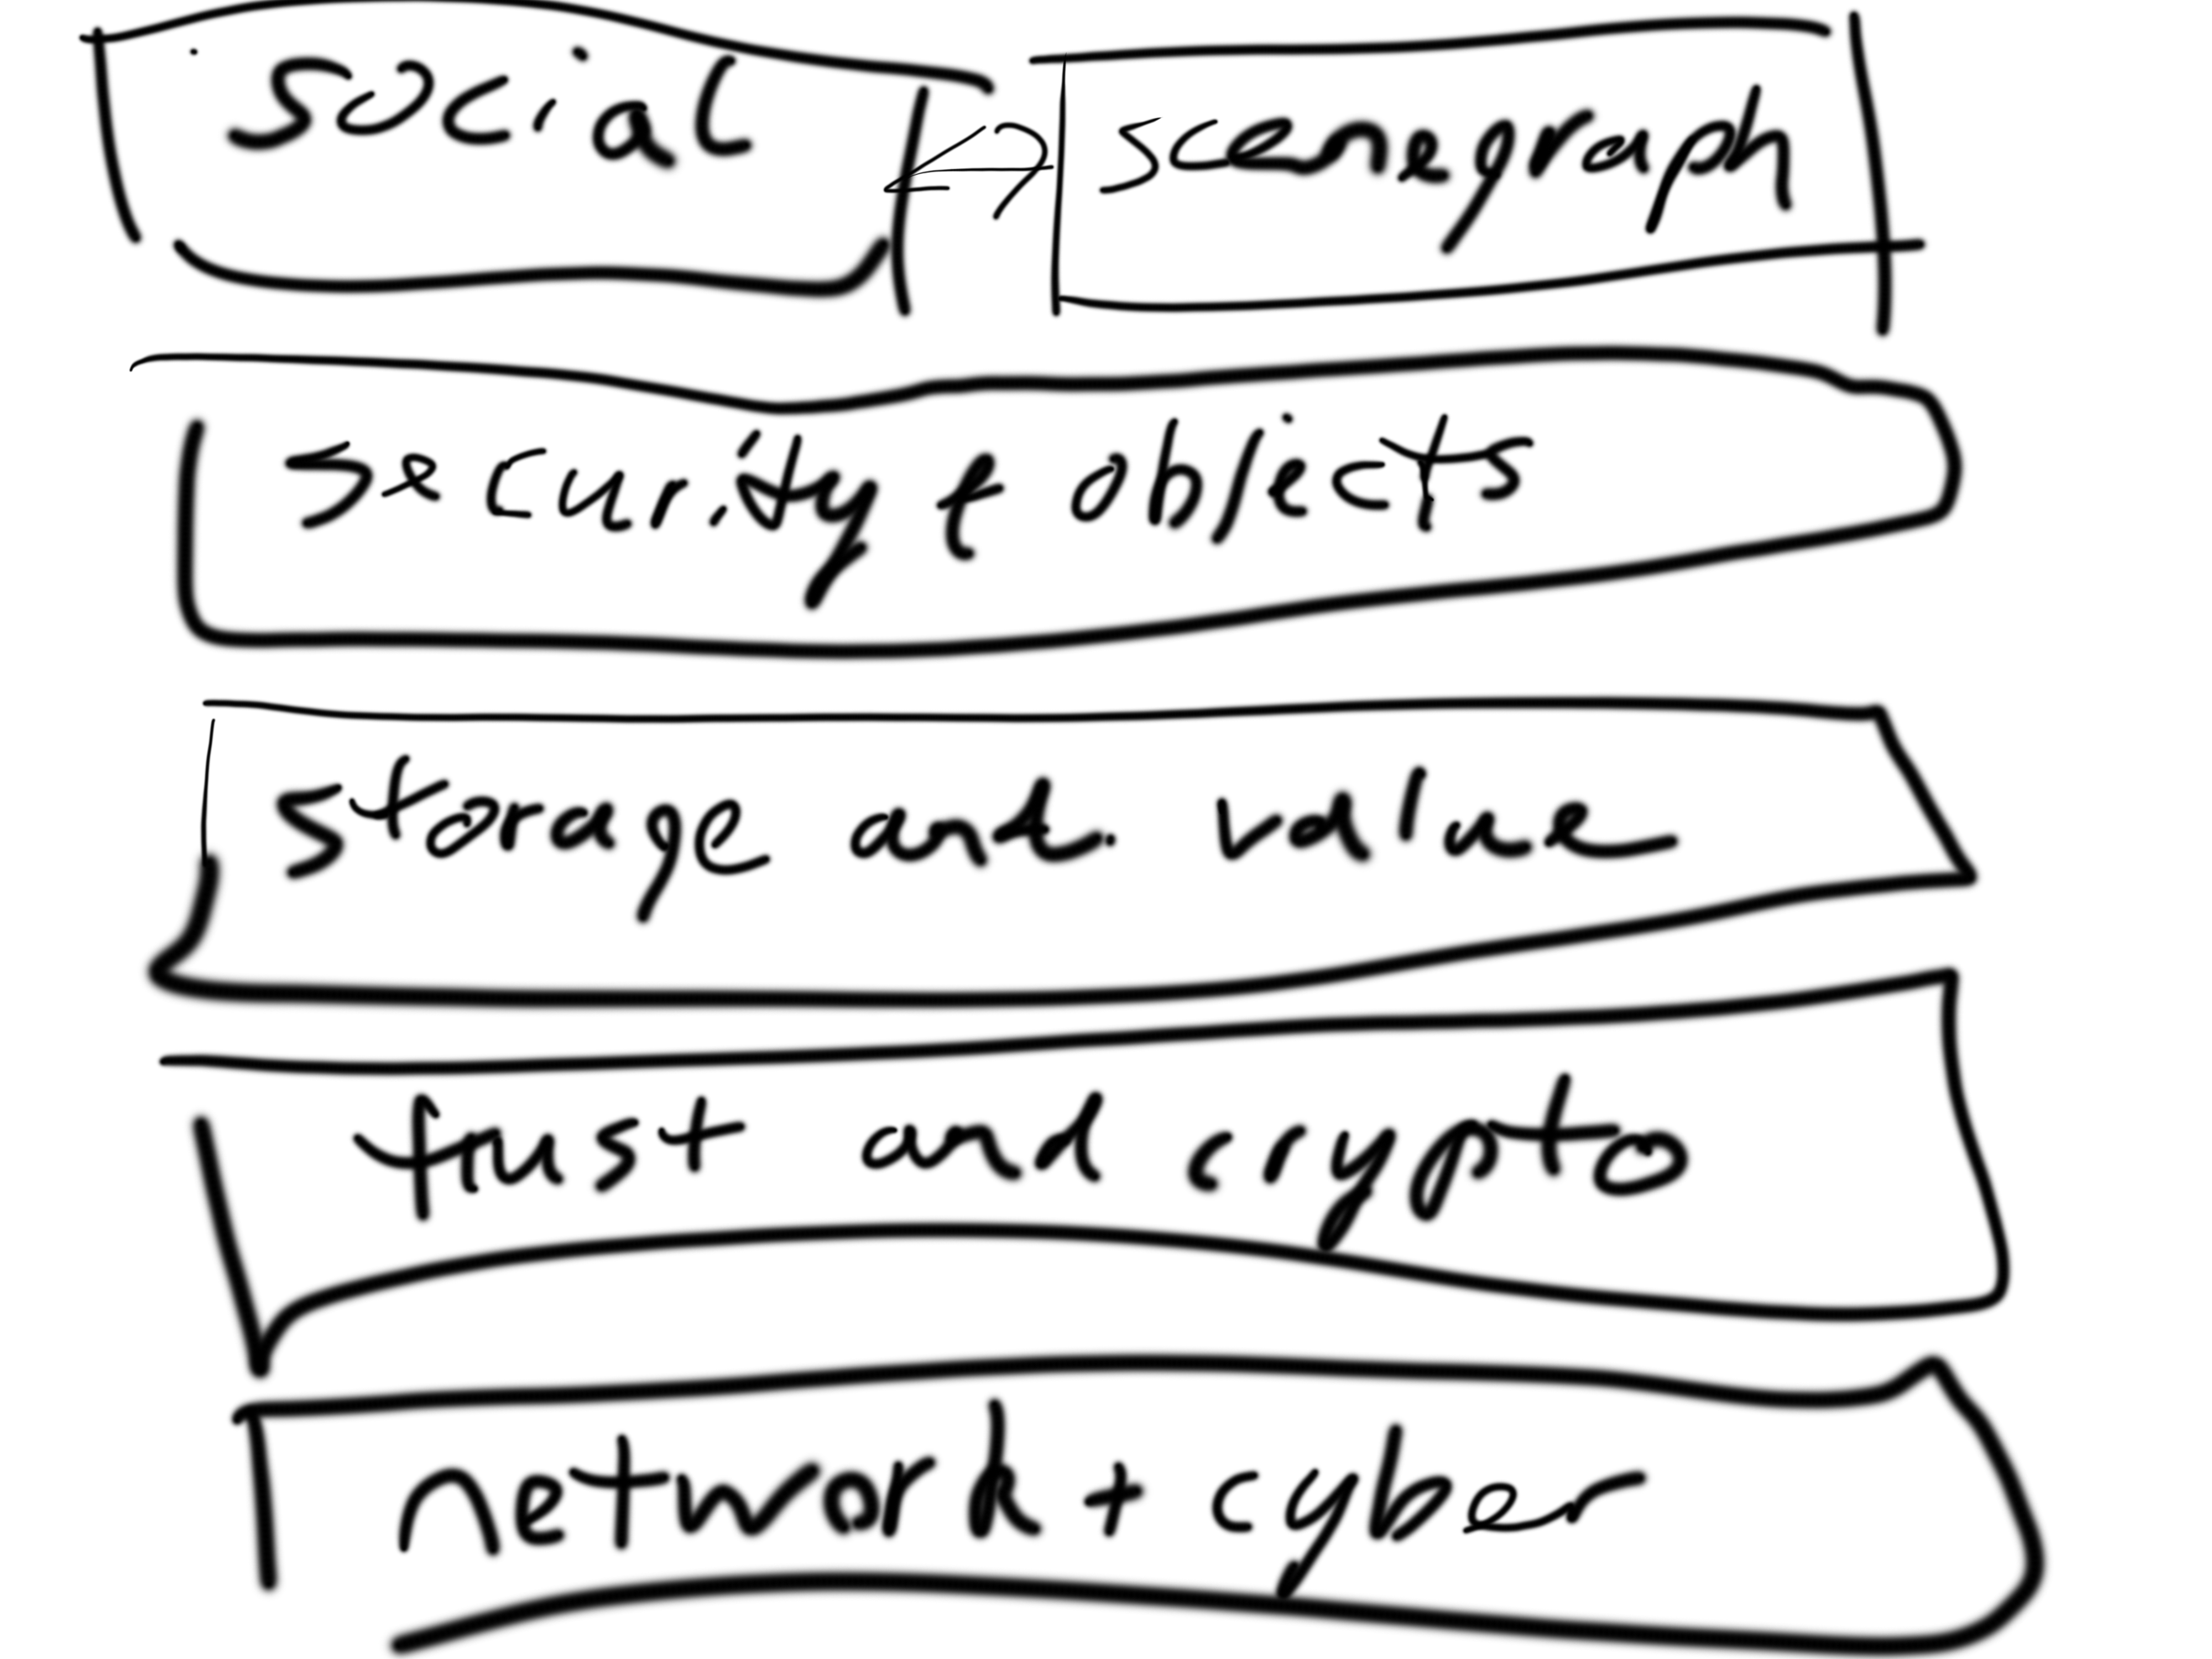 social <-> scenegraph
security & objects
storage and value
trust and crypto
network + cyber